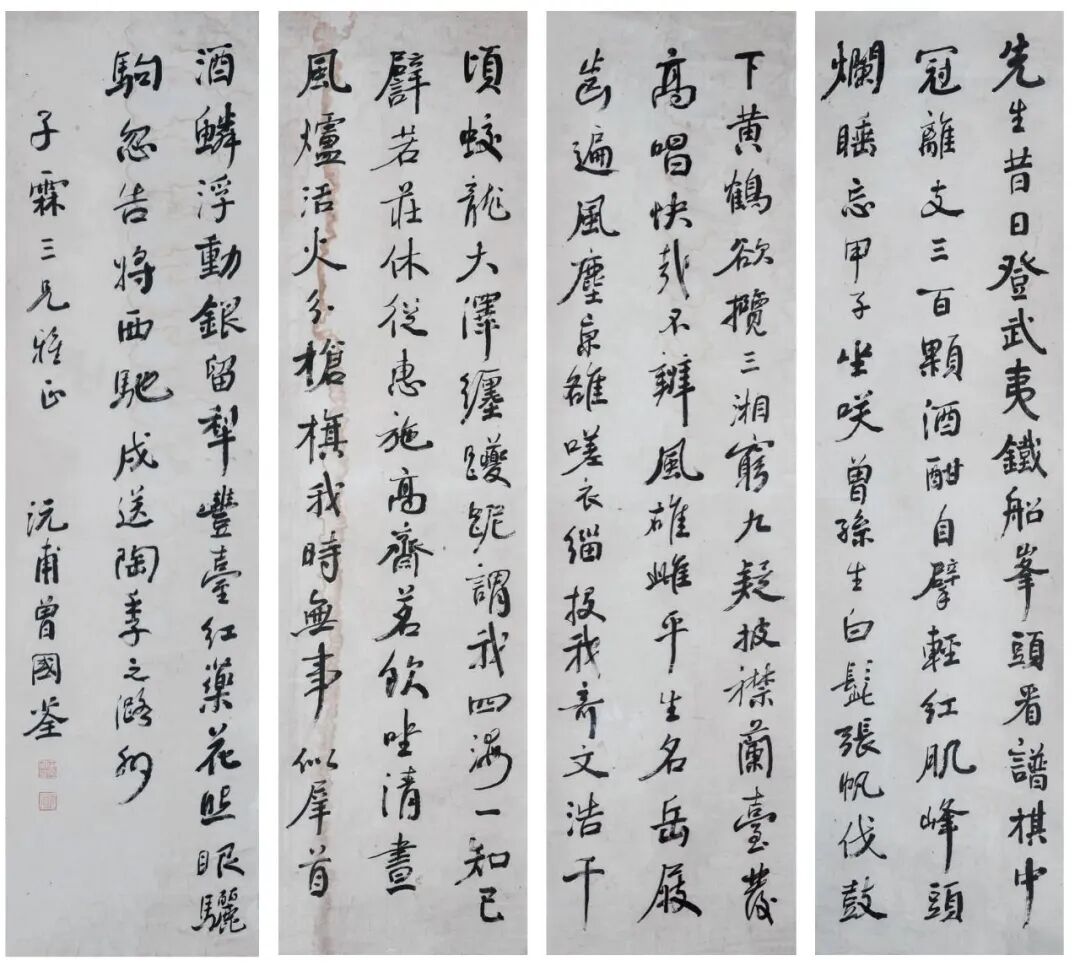 先生昔日登武夷鐵船峯頭看譜棋中
冠離支三百顆酒酣自擘輕紅肌峰頭
爛睡忘甲子坐咲曾孫生白髭張帆伐鼓
下黃鶴欲攬三湘窮九疑披襟蘭臺發
高唱快哉不辨風雄雌平生名岳屐
齒遍風塵京雒嗟衣緇投我奇文浩千
頃蛟龍大澤纏蘷鈮謂我四海一知己
譬若莊休從惠施高齋茗飲坐清晝
風爐活火分槍旗我時無事似犀首
酒鱗浮動銀留犁豐臺紅藥花照眼驪
駒忽告將西馳成送陶季之潞州
子霖三兄雅正
沅甫曾國荃